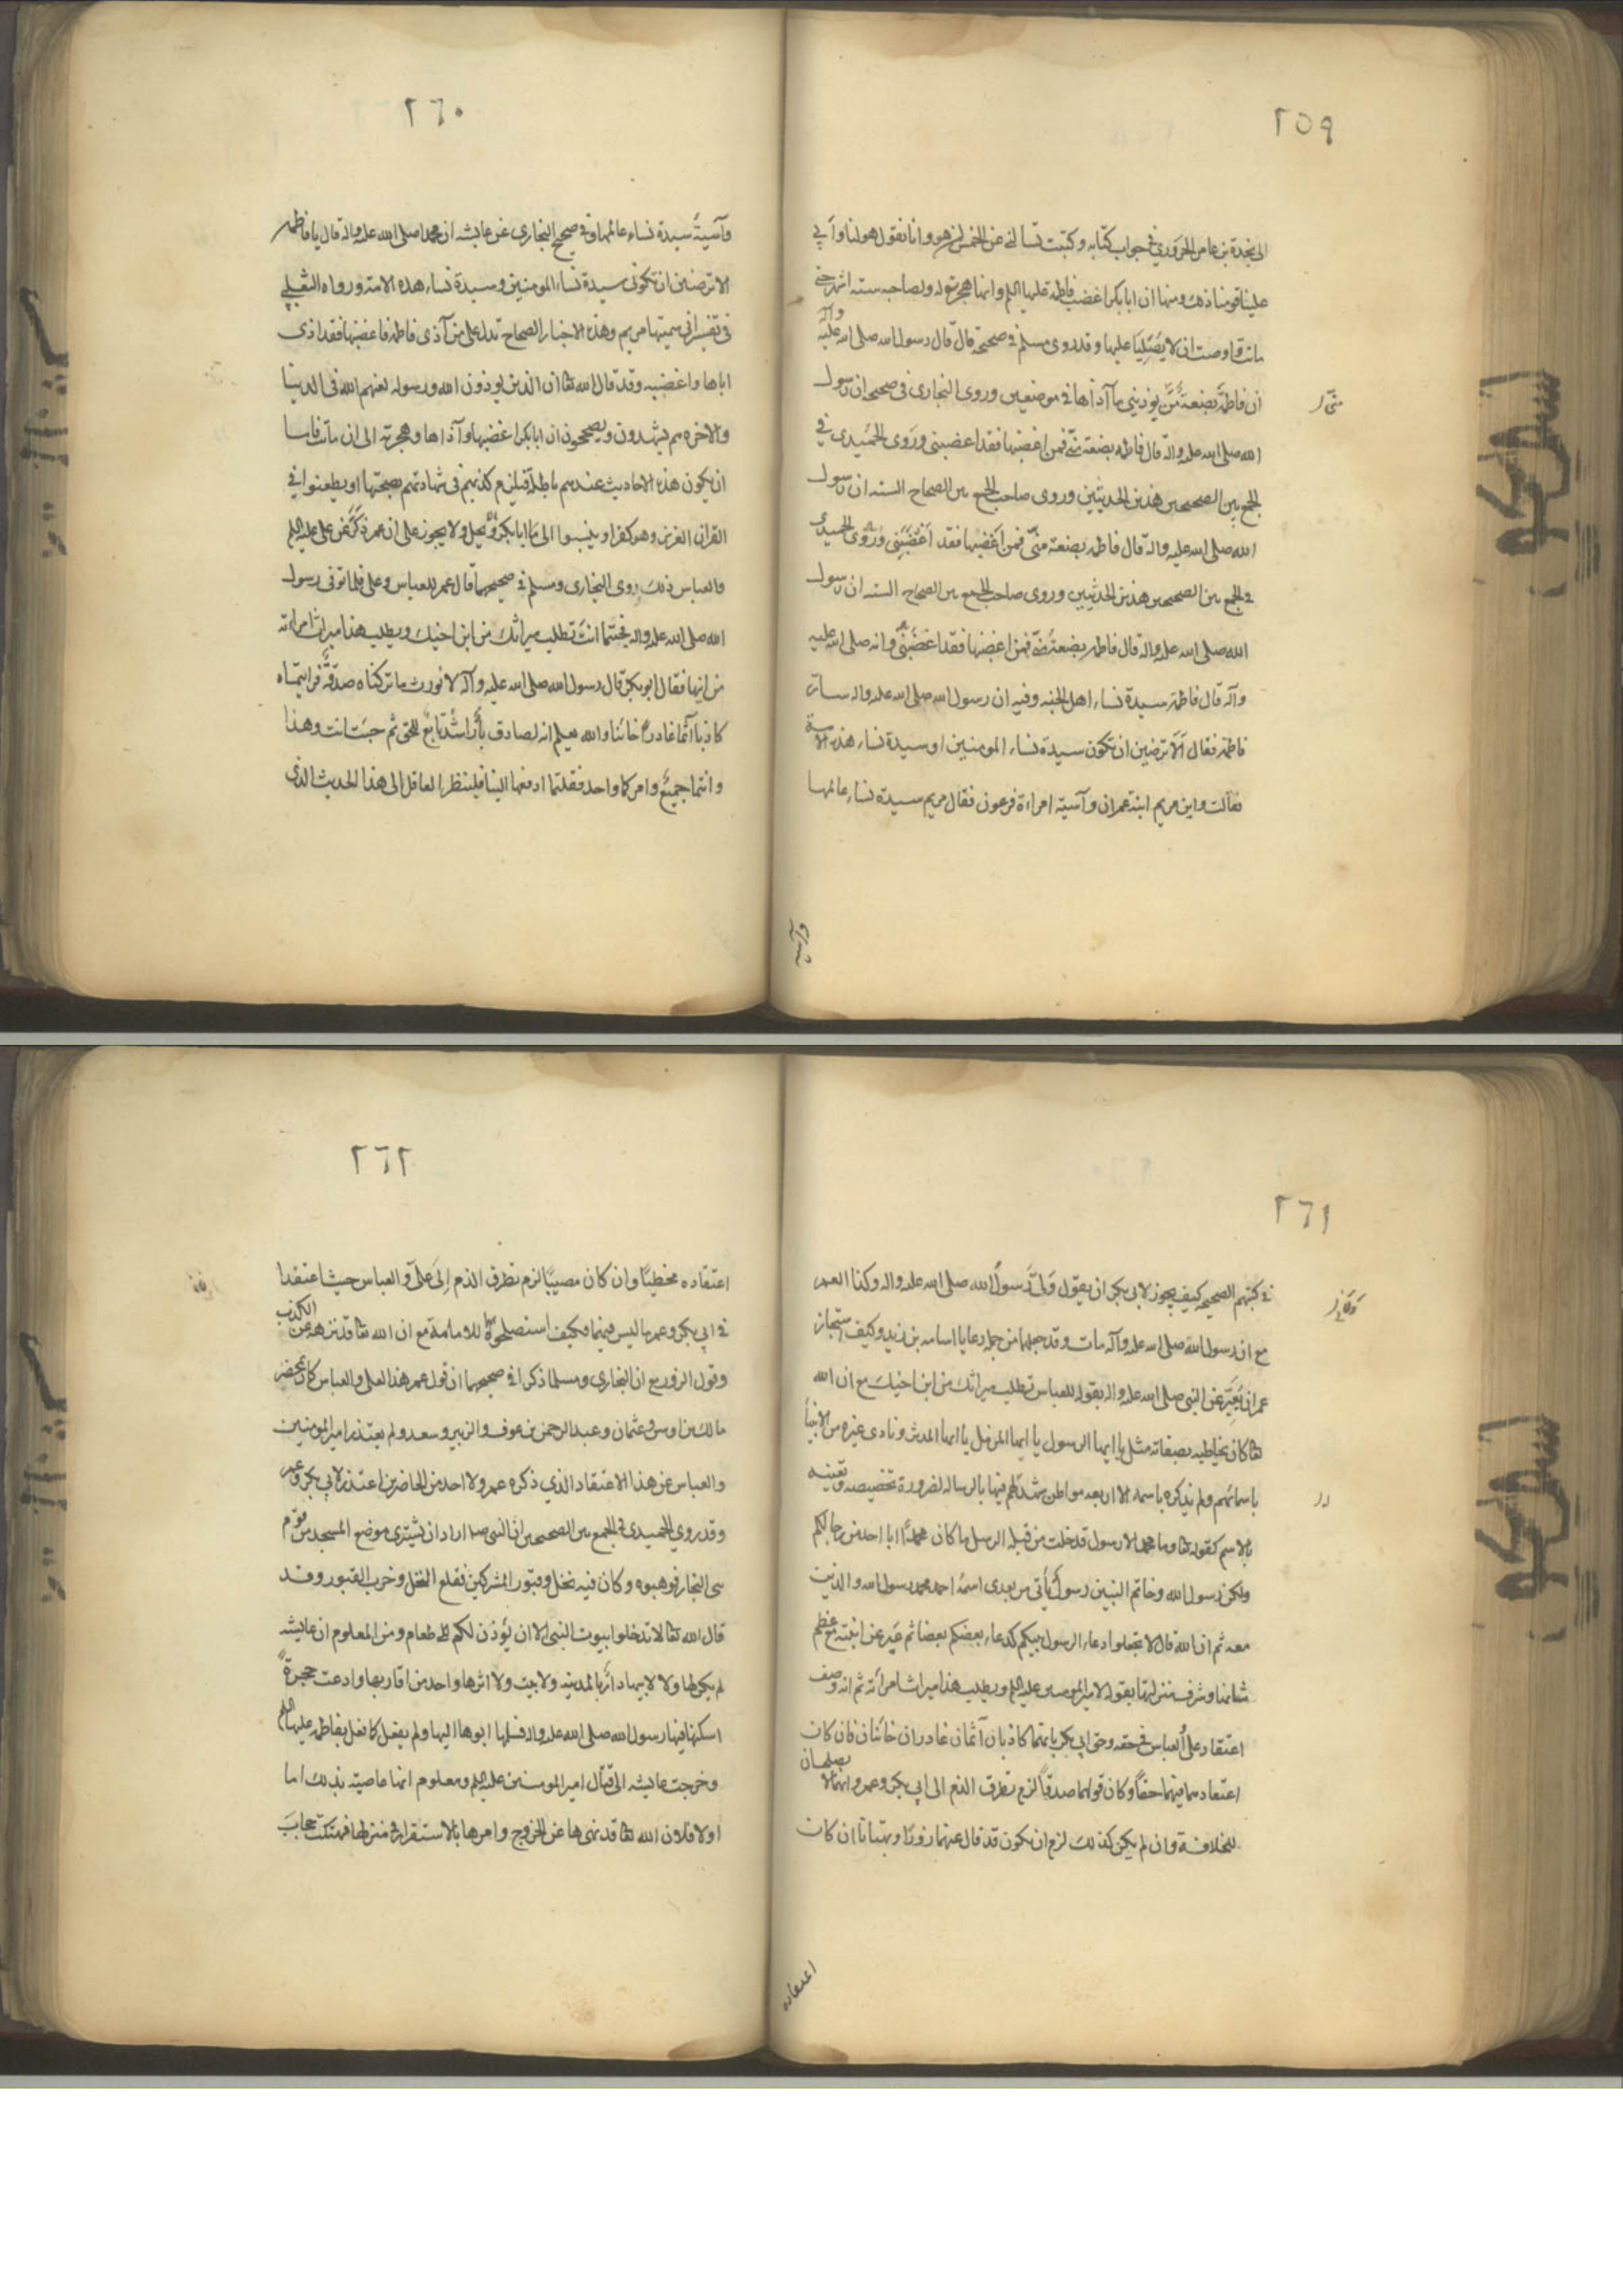 ٢٥٩
الى نجدة بن عامر الحروري في جواب كتابه وكتبت تسالني عن الخمس لمن هو وانا نقول هو لنا وابي
علينا قومنا ذلك ومنها ان ابا بكر اغضب فاطمه عليها السلم وانها هجرته وصاحبه ستة اشهر حتى
ماتت واوصت ان لا يصليا عليها وقد روى مسلم في صحيحه قال قال رسول الله صلى الله عليه وآله
ان فاطمة بضعة منى يوذيني ما آذاها في موضعين وروى البخارى في صحيحه ان رسول
الله صلى الله عليه واله قال فاطمه بضعة منى فمن اغضبها فقد اغضبنى وروى الحميدى في
الجمع بين الصحيحين هذين الحديثين وروى صاحب الجمع بين الصحاح الستة ان رسول
الله صلى الله عليه واله قال فاطمه بضعة منى فمن اغضبها فقد اغضبنى وروى الحميدى
في الجمع بين الصحيحين هذين الحديثين وروى صاحب الجمع بين الصحاح الستة ان رسول
الله صلى الله عليه واله قال فاطمه بضعة منى فمن اغضبها فقد اغضبنى وانه صلى الله عليه
وآله قال فاطمة سيدة نساء اهل الجنه وفيه ان رسول الله صلى الله عليه واله سار
فاطمة فقال الا ترضين ان تكون سيدة نساء المومنين او سيدة نساء هذه الامة
فقالت واين مريم ابنة عمران وآسية امراءة فرعون فقال مريم سيدة نساء عالمها
منى
وآسية
٢٦٠
وآسية سيدة نساء عالمها وفي صحيح البخارى عن عايشه ان محمدا صلى الله عليه واله قال يا فاطمه
الا ترضين ان تكونى سيدة نساء المومنين وسيدة نساء هذه الامة ورواه الثعلبي
في تفسير اني سميتها مريم وهذه الاخبار الصحاح تدل على من آذى فاطمة فاغضبها فقد اذى
اباها واغضبه وقد قال الله تعا ان الذين يوذون الله ورسوله لعنهم الله في الدنيا
والاخره ثم يشهدون ويصححون ان ابا بكر اغضبها وآذاها وهجرته الى ان ماتت فاما
ان يكون هذه الاحاديث عندهم باطلة فيلزم كذبهم في شهادتهم بصحتها او يطعنوا في
القران العزيز وهو كفر او ينسبوا الى ابا بكر ما لا يحل ولا يجوز على ان عمر ذكر عن على عليه السلم
والعباس ذلك روى البخارى ومسلم في صحيحهما قال عمر للعباس وعلى فلما توفى رسول
الله صلى الله عليه واله فجئتما انت تطلب ميراثك من ابن اخيك ويطلب هذا ميراث امراءته
من ابيها فقال ابو بكر قال رسول الله صلى الله عليه وآله لا نورث ما تركناه صدقة فرايتماه
كاذبا آثما غادرا خائنا والله يعلم انه لصادق بار راشد تابع للحق ثم جئت انت وهذا
وانتما جميع وامركما واحد فقلتما ادفعها الينا فلينظر العاقل الى هذا الحديث الذى
٢٦١
في كتبهم الصحيحه كيف يجوز لابى بكر ان يقول ولى رسول الله صلى الله عليه واله وكذا لعمر
مع ان رسول الله صلى الله عليه وآله مات وقد جعلهما من جملة رعايا اسامه بن زيد وكيف استجاز
عمر ان يعبر عن النبى صلى الله عليه واله بقوله للعباس تطلب ميراثك من ابن اخيك مع ان الله
تعا كان يخاطبه بصفاته مثل يا ايها الرسول يا ايها المزمل يا ايها المدثر ونادى غيره من الانبيا
باسمائهم ولم يذكره باسمه الا اربعه مواطن شهد لهم فيها بالرساله لضرورة تخصيصه وتعيينه
بالاسم كقوله تعا وما محمد الا رسول قد خلت من قبله الرسل ما كان محمد ابا احد من رجالكم
ولكن رسول الله وخاتم النبيين رسول يأتى من بعدى اسمه احمد محمد رسول الله والذين
معه ثم ان الله قال لا تجعلوا دعاء الرسول بينكم كدعاء بعضكم بعضا ثم عبر عن ابنته مع عظم
شانها وشرف منزلتها بقوله لامير المومنين عليه السلم ويطلب هذا ميراث امرأته ثم انه وصف
اعتقاد على والعباس في حقه وحق ابى بكر بانهما كاذبان آثمان غادران خائنان فان كان
اعتقادهما فيهما حقا وكان قولهما صدقا لزم تطرق الذم الى ابى بكر وعمر وانهما لا يصلحان
للخلافة وان لم يكن كذلك لزم ان يكون قد قال عنهما زورا وبهتانا ان كان
اعتقاده
٢٦٢
اعتقاده مخطيئا وان كان مصيبا لزم تطرق الذم الى على والعباس حيث اعتقدا
في ابى بكر وعمر ما ليس فيهما فكيف استصلحوه للامامة مع ان الله تعا قد نزهه عن الكذب
وقول الزور مع ان البخارى ومسلما ذكرا في صحيحهما ان قول عمر هذا لعلى والعباس كان بمحضر
مالك بن اوس وعثمان وعبد الرحمن بن عوف والزبير وسعد ولم يعتذر امير المومنين
والعباس عن هذا الاعتقاد الذي ذكره عمر ولا احد من الحاضرين اعتذر لابى بكر وعمر
وقد روى الحميدى في الجمع بين الصحيحين ان النبى صلعم اراد ان يشترى موضع المسجد من قوم
بنى النجار فوهبوه وكان فيه نخل وقبور المشركين فقلع النخل وخرب القبور وقد
قال الله تعا لا تدخلوا بيوت النبى الا ان يؤذن لكم الى طعام ومن المعلوم ان عايشه
لم يكن لها ولا لابيها دار بالمدينه ولا بيت ولا اثرها واحد من اقاربها وادعت حجرة
اسكنها فيها رسول الله صلى الله عليه واله فسلمها ابوها اليها ولم يفعل كما فعل بفاطمه عليها السلم
وخرجت عايشه الى قتال امير المومنين عليه السلم ومعلوم انها عاصية بذلك اما
اولا فلان الله تعا قد نهى ها عن الخروج وامرها بالاستقرار في منزلها فهتكت حجاب